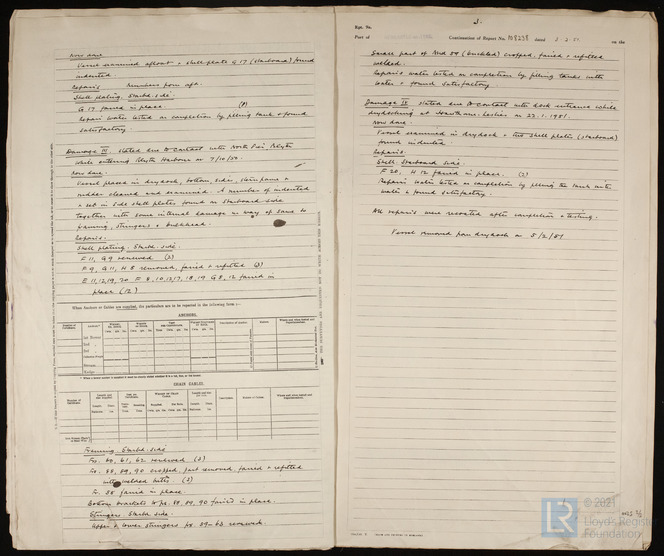 Now done
Vessel examined afloat + shell plate G 17 (starboard) found
indented.
Repairs Numbers from aft.
Shell plating. Starbd. side.
G 17 faired in place. (1)
Repair water tested on completion by filling tank + found
satisfactory
Damage III stated due to contact with North Pier Blyth
while entering Blyth Harbour on 7/10/50.
Now done.
Vessel placed in drydock, bottom, sides, stern frame +
rudder cleaned and examined. A number of indented
+ set in side shell plates found on starboard side
together with some internal damage in way of same to
framing, stringers + bulkhead.
Repairs.
Shell plating. Starbd. side.
F 11, G 9 renewed (2)
F 9, G 11, H 8 removed, faired + refitted (3)
E 11, 12, 19, 20 F 8, 10, 12, 17, 18, 19 G 8, 12 faired in
place (12)
When Anchors or Cables are supplied, the particulars are to be reported in the following form :—
ANCHORS.
1st Bower
2nd
3rd
Stream
Kedge
CHAIN CABLES.
Framing. Starbd. side
Frs. 60, 61, 62 renewed (3)
Frs. 88, 89, 90 cropped, part removed, faired + refitted
with welded butts. (3)
Fr. 88 faired in place.
Bottom brackets to frs. 88, 89, 90 faired in place.
Stringers. Starbd. side.
Upper + lower stringers frs 59-63 renewed.
3.
Rpt. No.
Part of Continuation of Report No. 108238 dated 3.2.51 on the
Small part of Bhd 59 (buckled) cropped, faired + refitted
welded.
Repairs water tested on completion by filling tanks with
water + found satisfactory.
Damage IV stated due to contact with dock entrance while
drydocking at Hawthorn Leslies on 22.1.1951.
Now done.
Vessel examined in drydock + two shell plates (starboard)
found indented.
Repairs.
Shell. Starboard side.
F 20, H 12 faired in place. (2)
Repairs water tested on completion by filling the tank with
water + found satisfactory.
All repairs were recoated after completion + testing.
Vessel removed from drydock on 5/2/51
© 2021
LR
Lloyd's Register
Foundation